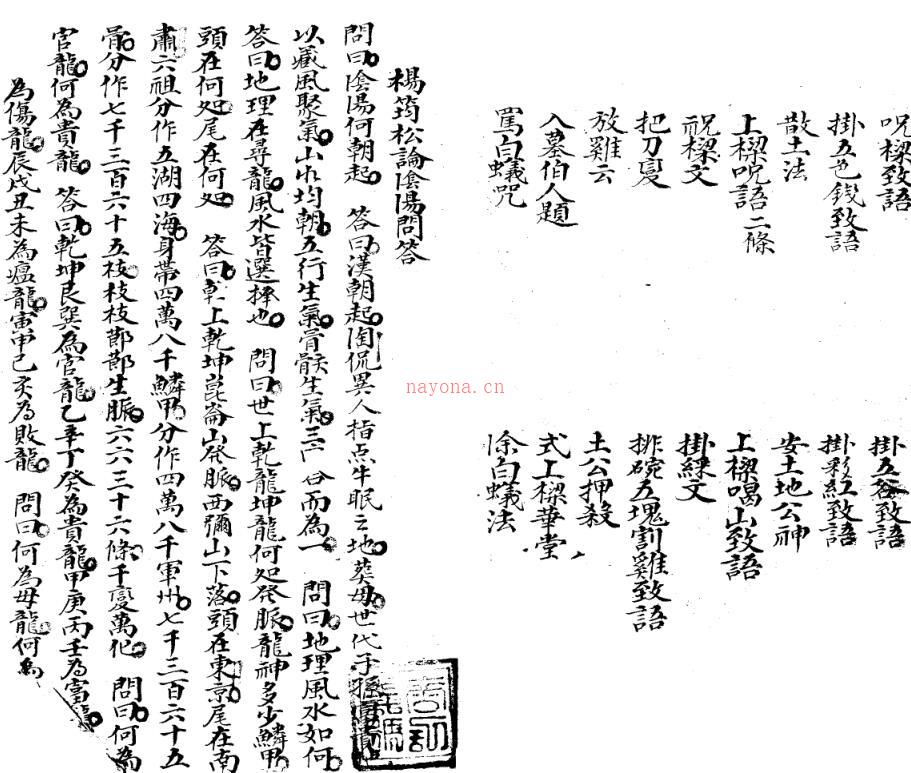 呪樑致語
掛五色錢致語
散土法
上樑呪語二條
祝樑文
把刀變
放雞云
入墓伯人題
罵白蟻咒
掛五谷致語
掛彩紅致語
安土地公神
上樑喝山致語
掛綵文
排碗五塊割雞致語
土公押殺
式上樑華堂
除白蟻法
楊筠松論陰陽問答
問曰陰陽何朝起 答曰漢朝起陶侃異人指点牛眠之地葬毋世代子孫
以藏風聚氣山水均朝五行生氣骨骸生氣三 合而為一 問曰地理風水如何
答曰地理在尋龍風水皆選擇也 問曰世上乾龍坤龍何処發脈龍神多少鱗甲
頭在何処尾在何処 答曰乾上乾坤崑崙山發脈西彌山下落頭在東京尾在南
肅六祖分作五湖四海身帶四萬八千鱗甲分作四萬八千軍州七千三百六十五
骨分作七千三百六十五枝枝枝節節生脈六六三十六條千變萬化 問曰何為
官龍何為貴龍 答曰乾坤艮巽為官龍乙辛丁癸為貴龍甲庚丙壬為富龍
為傷龍辰戌丑未為瘟龍寅申巳亥為敗龍 問曰何為毋龍何為
nayona.cn